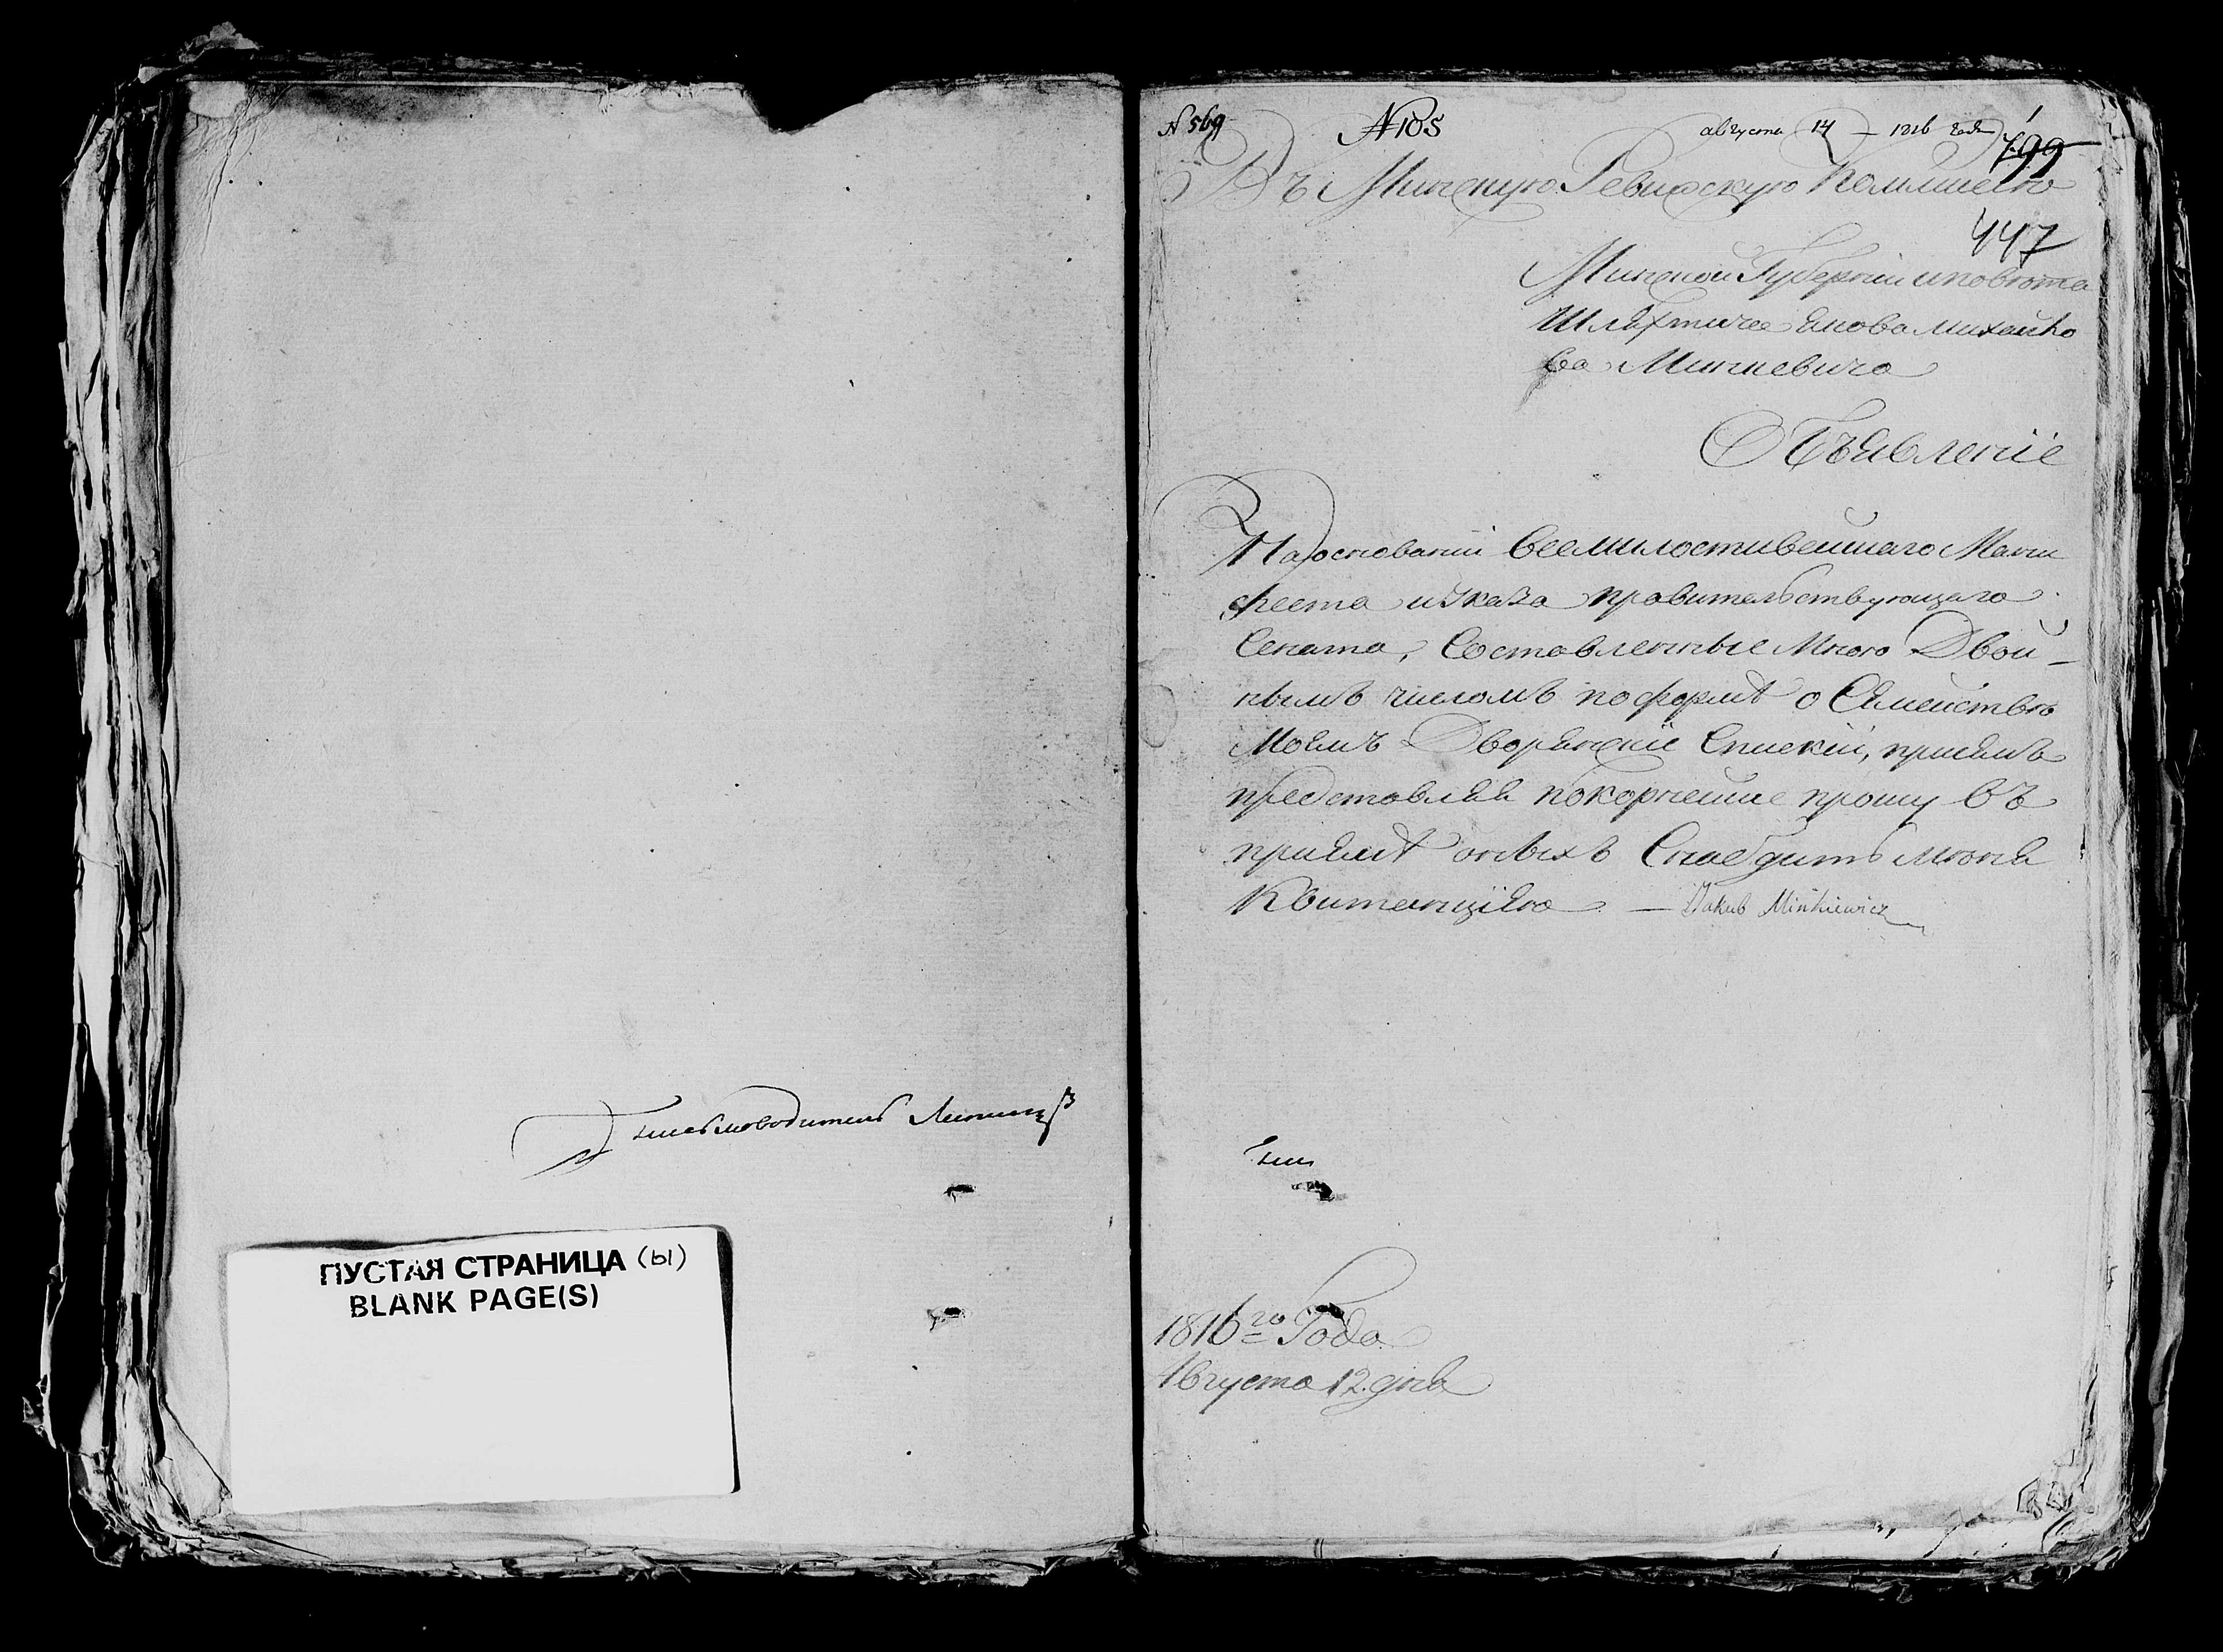 Письмоводитель
ПУСТАЯ СТРАНИЦА (ы)
BLANK PAGE(S)
N 569
N 105
августа 14 – 1816 года
799
Въ Минскую Ревизскую Коммисію
447
Минской Губерніи и повѣта
Шляхтича Якова Михайло
ва Минкевича
Объявленіе
На основаніи Всемилостивейшаго Мани
феста и Указа правительствующаго
Сената, Составленные Мною Двой-
нымъ числомъ по формѣ о Семействѣ
Моемъ Дворянскіе Списки, присемъ
представляя покорнейше прошу въ
приемѣ оныхъ Снабдить меня
Квитанціею — Jakub Minkiewicz
1816го Года
Августа 12. дня